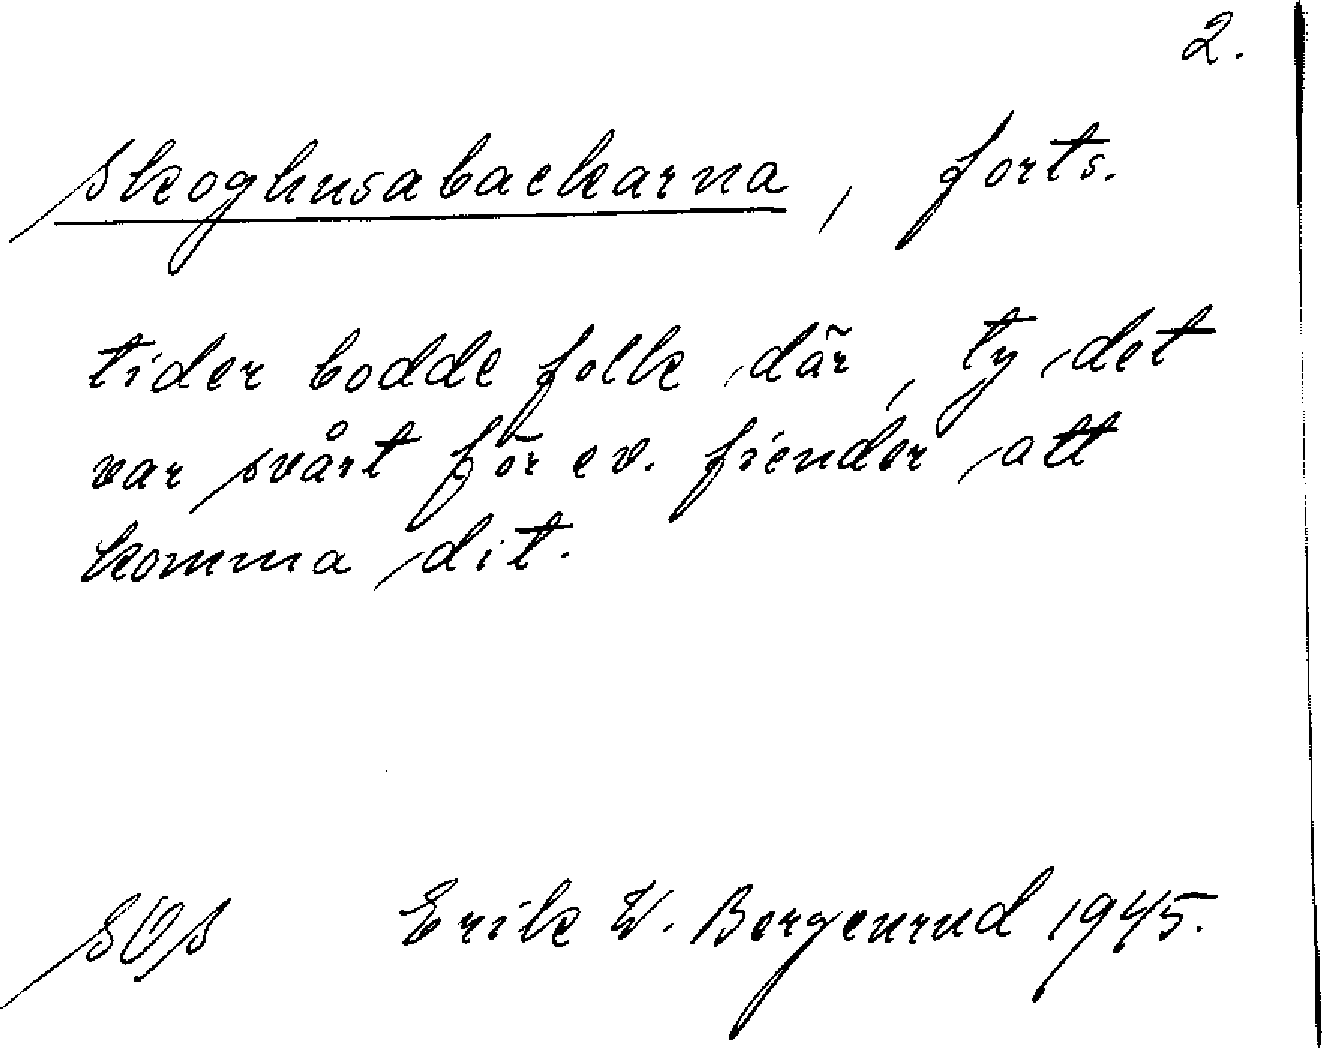 2.
Skoghusabackarna, forts.
tider bodde folk där, ty det
var svårt för ev. fiender att
komma dit.
Erik W. Bergenrud 1945.